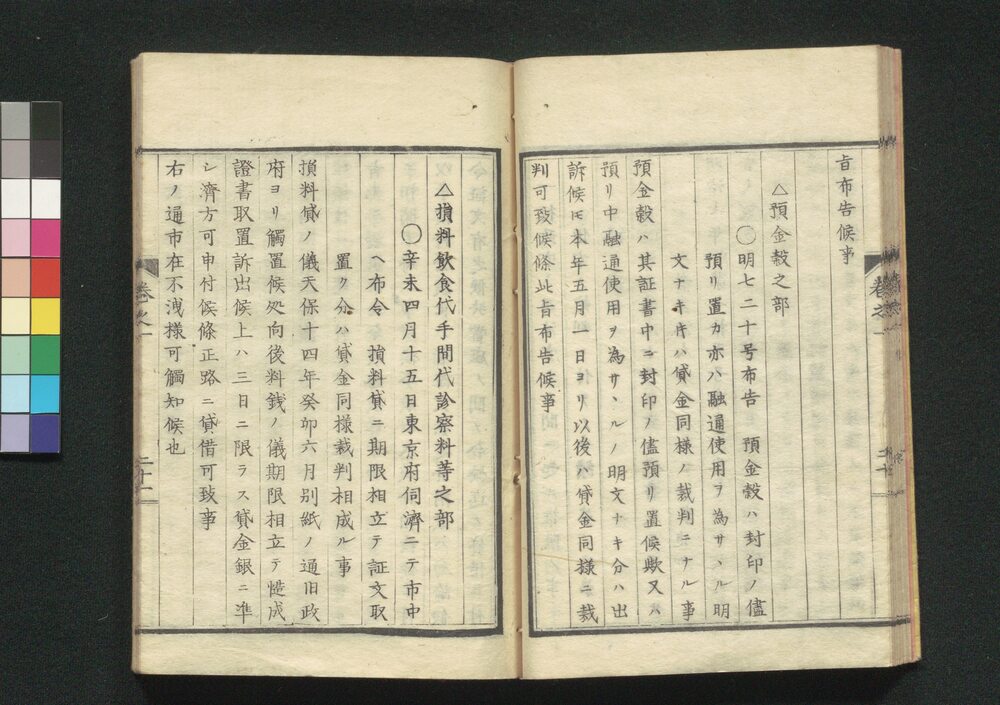 旨布告候事
△預金穀之部
○明七二十号布告ニ預金穀ハ封印ノ儘
預リ置カ亦ハ融通使用ヲ為サヽル明
文ナキキハ貸金同様ノ裁判ニナル事
預金穀ハ其証書中ニ封印ノ儘預リ置候歟又ハ
預リ中融通使用ヲ為サヽルノ明文ナキ分ハ出
訴候モ本年五月一日ヨリ以後ハ貸金同様ニ裁
判可致候條此旨布告候事
巻之一
二十
△損料飲食代手間代診察料等之部
○辛未四月十五日東京府伺済ニテ市中
ヘ布令ス損料貸ニ期限相立テ証文取
置ク分ハ貸金同様裁判相成ル事
損料貸ノ儀天保十四年癸卯六月別紙ノ通旧政
府ヨリ觸置候処向後料銭ノ儀期限相立テ慥成
證書取置訴出候上ハ三日ニ限ラス貸金銀ニ準
シ濟方可申付候條正路ニ貸借可致事
右ノ通市在不洩様可觸知候也
巻之一
二十一